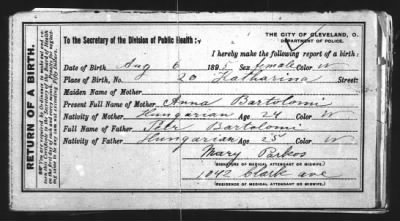 THE CITY OF CLEVELAND, O.
DEPARTMENT OF POLICE.
To the Secretary of the Division of Public Health:
I hereby make the following report of a birth:
Date of Birth Aug 6 1895 Sex female Color W
Place of Birth, No. 20 Katharina Street:
Maiden Name of Mother
Present Full Name of Mother Anna Bartolomi
Nativity of Mother Hungarian Age 24 Color W
Full Name of Father Petr Bartolomi
Nativity of Father Hungarian Age 25 Color W
Mary Parkos
(SIGNATURE OF MEDICAL ATTENDANT OR MIDWIFE)
1042 Clark ave
(RESIDENCE OF MEDICAL ATTENDANT OR MIDWIFE)
RETURN OF A BIRTH.